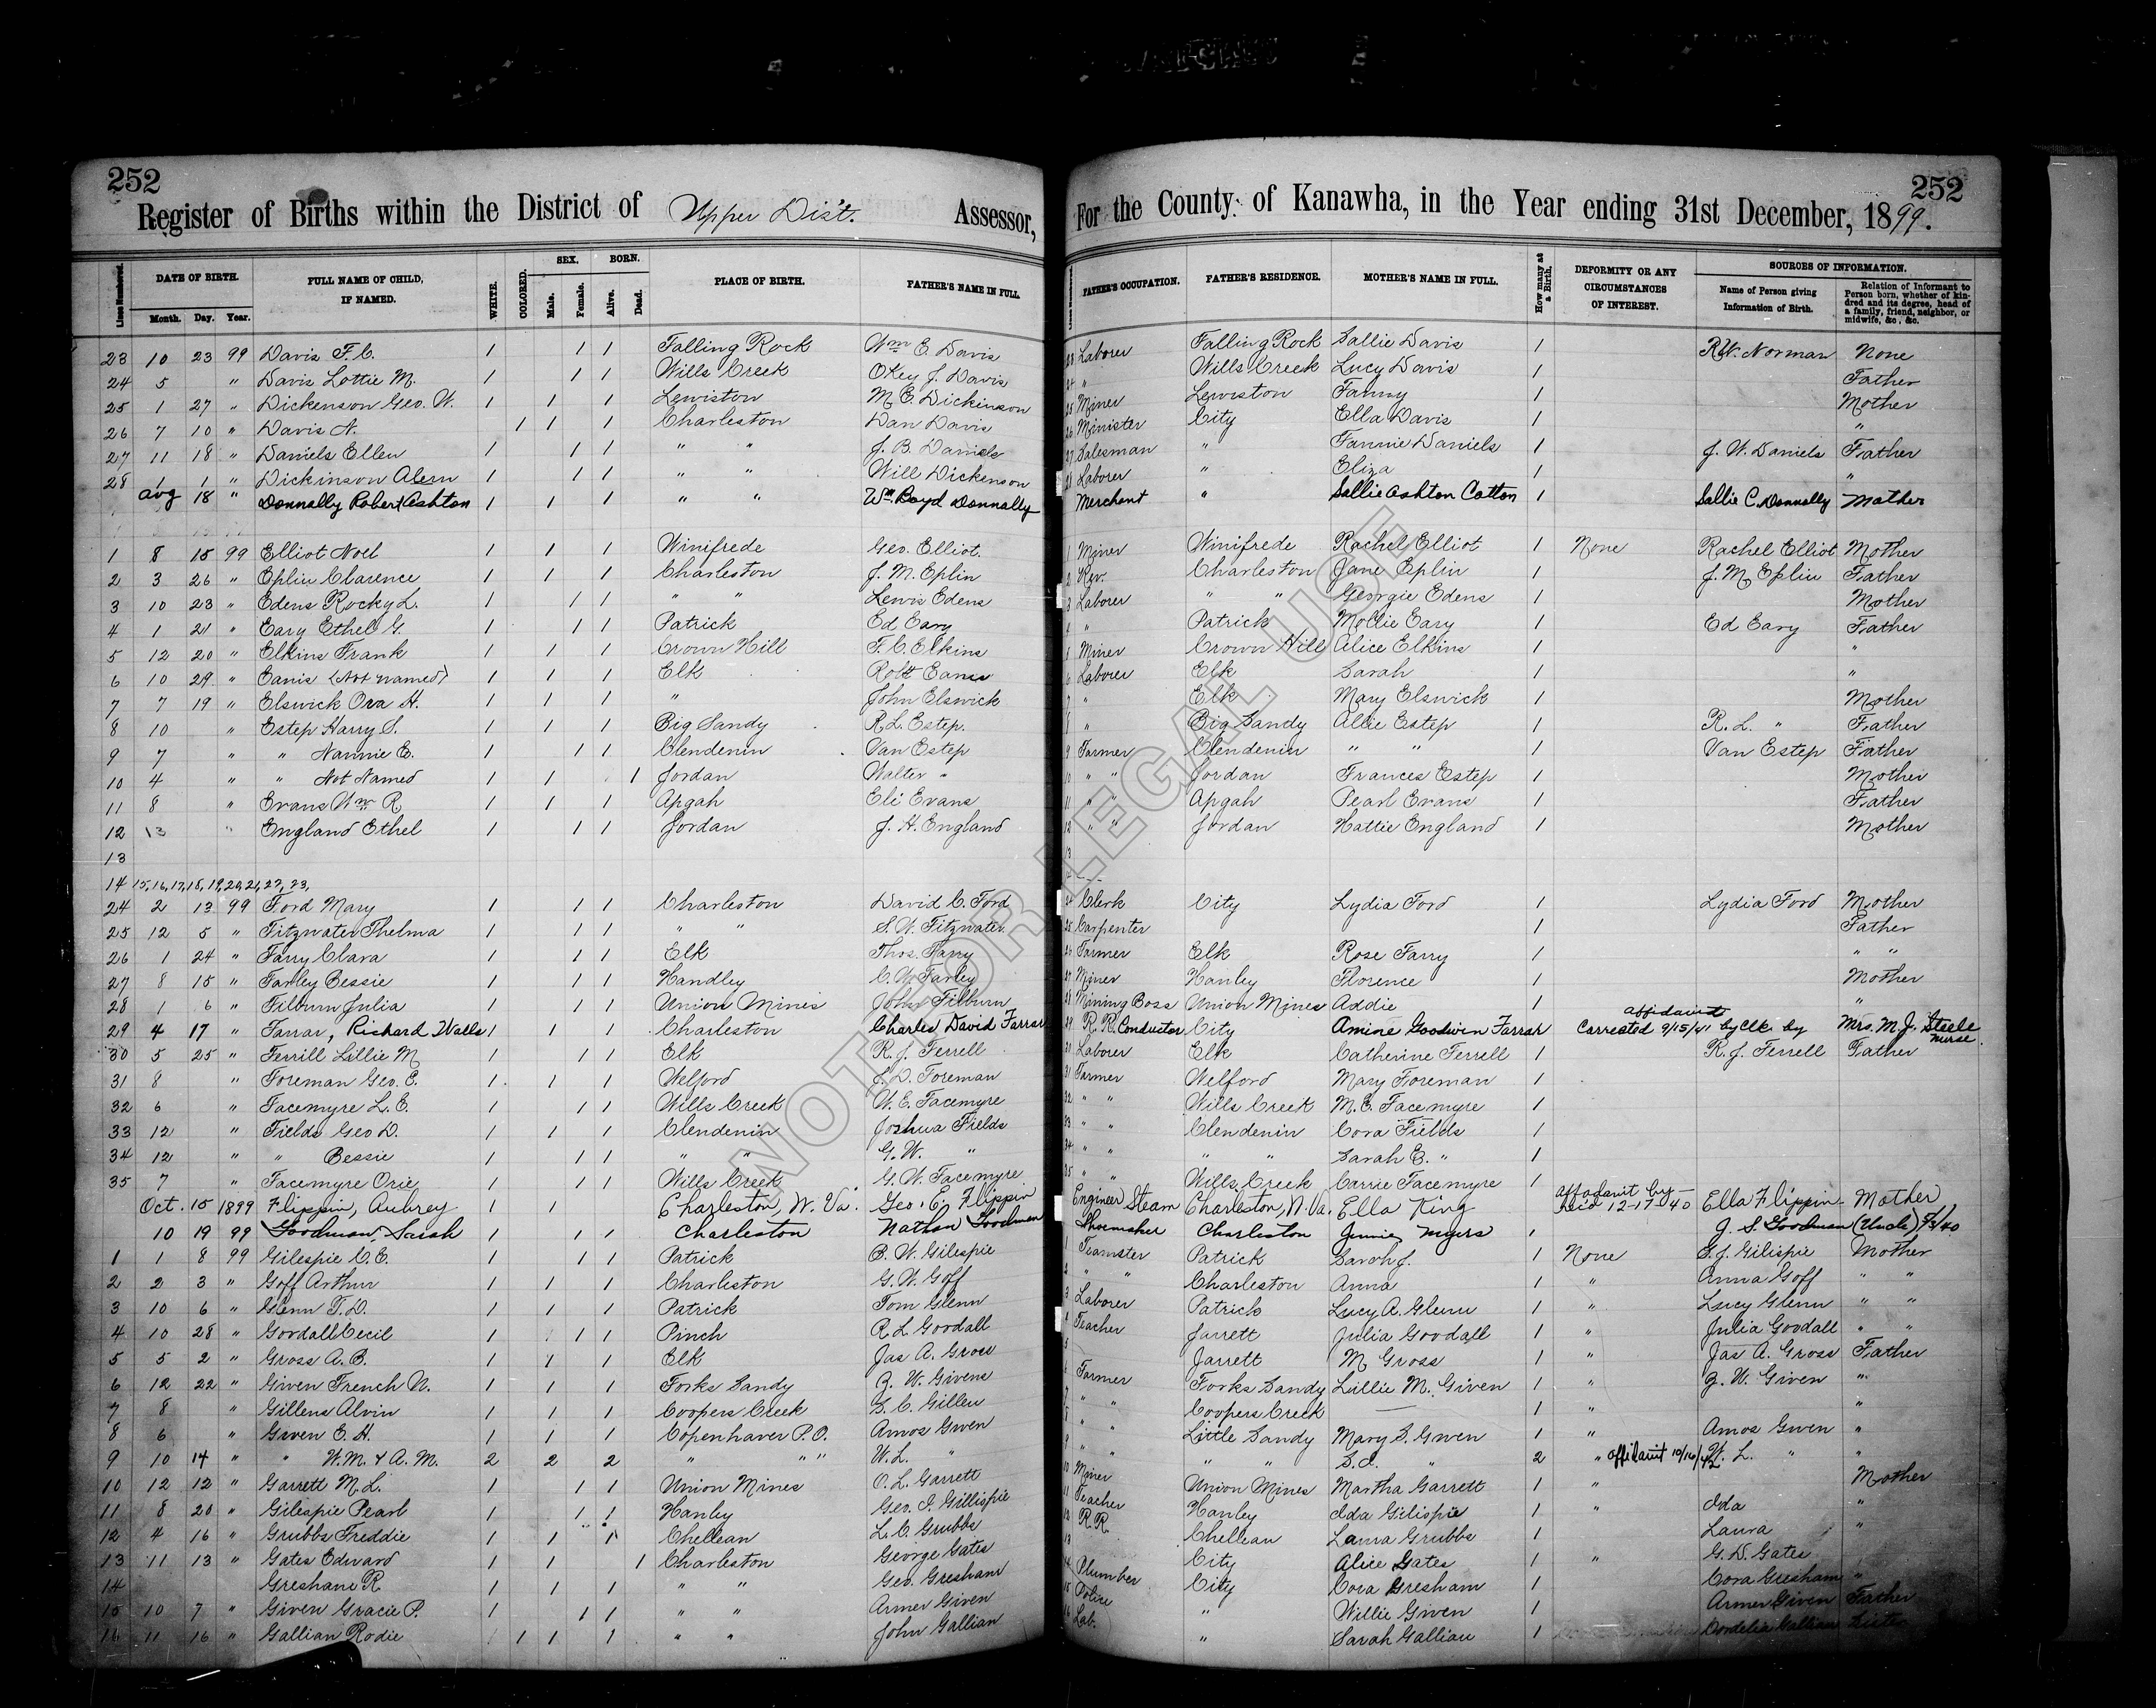 252
Register of Births within the District of Upper Dist. Assessor,
252
For the County of Kanawha, in the Year ending 31st December, 1899.
Lines Numbered. DATE OF BIRTH. Month. Day. Year. FULL NAME OF CHILD, IF NAMED. WHITE. COLORED. SEX. Male. Female. BORN. Alive. Dead. PLACE OF BIRTH. FATHER'S NAME IN FULL.
FATHER'S OCCUPATION. FATHER'S RESIDENCE. MOTHER'S NAME IN FULL. How many at a Birth. DEFORMITY OR ANY CIRCUMSTANCES OF INTEREST. SOURCES OF INFORMATION. Name of Person giving Information of Birth. Relation of Informant to Person born, whether of kindred and its degree, head of a family, friend, neighbor, or midwife, &c., &c.
23 10 23 99 Davis F. C. 1 1 1 Falling Rock Wm E. Davis 23 Laborer Falling Rock Sallie Davis 1 R.W. Norman None
24 5 " Davis Lottie M. 1 1 1 Wills Creek Okey J. Davis 24 " Wills Creek Lucy Davis 1 Father
25 1 27 " Dickenson Geo. W. 1 1 1 Lewiston M. E. Dickinson 25 Miner Lewiston Fanny 1 Mother
26 7 10 " Davis N. 1 1 1 Charleston Dan Davis 26 Minister City Ella Davis 1 "
27 11 18 " Daniels Ellen 1 1 1 " " J. B. Daniels 27 Salesman " Fannie Daniels 1 J. W. Daniels Father
28 1 1 " Dickinson Alern 1 1 1 " " Will Dickenson 28 Laborer " Eliza 1 "
Aug 18 " Donnally Robert Ashton 1 1 1 " " Wm Boyd Donnally Merchant " Sallie Ashton Cotton 1 Sallie C. Donnally Mother
1 8 15 99 Elliot Noel 1 1 1 Winifrede Geo. Elliot. 1 Miner Winifrede Rachel Elliot 1 None Rachel Elliot Mother
2 3 26 " Eplin Clarence 1 1 1 Charleston J. M. Eplin 2 Rev. Charleston Jane Eplin 1 J. M. Eplin Father
3 10 23 " Edens Rocky L. 1 1 1 " " Lewis Edens 3 Laborer " " Georgie Edens 1 Mother
4 1 21 " Eary Ethel G. 1 1 1 Patrick Ed Eary " Patrick Mollie Eary 1 Ed Eary Father
5 12 20 " Elkins Frank 1 1 1 Crown Hill F. C. Elkins 5 Miner Crown Hill Alice Elkins 1 "
6 10 29 " Eanis (Not named) 1 1 1 Elk Robt Eanis 6 Laborer Elk Sarah 1 "
7 7 19 " Elswick Ora H. 1 1 1 " John Elswick 7 " Elk Mary Elswick 1 Mother
8 10 " Estep Harry S. 1 1 1 Big Sandy R. L. Estep. " Big Sandy Allie Estep 1 R. L. " Father
9 7 " " Nannie E. 1 1 1 Clendenin Van Estep 9 Farmer Clendenin " " 1 Van Estep Father
10 4 " " Not Named 1 1 1 Jordan Walter " 10 " " Jordan Frances Estep 1 Mother
11 8 " Evans Wm R. 1 1 1 Apgah Eli Evans 11 " " Apgah Pearl Evans 1 Father
12 13 " England Ethel 1 1 1 Jordan J. H. England 12 " " Jordan Hattie England 1 Mother
13 13
14 15, 16, 17, 18, 19, 20, 21, 22, 23,
24 2 13 99 Ford Mary 1 1 1 Charleston David C. Ford 24 Clerk City Lydia Ford 1 Lydia Ford Mother
25 12 5 " Fitzwater Thelma 1 1 1 " " S. W. Fitzwater 25 Carpenter 1 Father
26 1 24 " Farry Clara 1 1 1 Elk Thos. Farry 26 Farmer Elk Rose Farry 1 " "
27 8 15 " Farley Bessie 1 1 1 Handley C. W. Farley 27 Miner Hanley Florence 1 Mother
28 1 6 " Filburn Julia 1 1 1 Union Mines John Filburn 28 Mining Boss Union Mines Addie 1 "
29 4 17 " Farrar, Richard Walls 1 1 1 Charleston Charles David Farrar 29 R. R. Conductor City Amine Goodwin Farrar Corrected 9/15/41 by Clk. by affidavit Mrs. M. J. Steele nurse.
30 5 25 " Ferrill Lillie M 1 1 1 Elk R. J. Ferrell 30 Laborer Elk Catherine Ferrell 1 R. J. Ferrell Father
31 8 " Foreman Geo. E. 1 1 1 Welford J. D. Foreman 31 Farmer Welford Mary Foreman 1
32 6 " Facemyre L. E. 1 1 1 Wills Creek W. E. Facemyre 32 " " Wills Creek M. E. Facemyre 1
33 12 " Fields Geo D. 1 1 1 Clendenin Joshua Fields 33 " " Clendenin Cora Fields 1
34 12 " " Bessie 1 1 1 " " G. W. " 34 " " " " Sarah E. " 1
35 7 " Facemyre Orie 1 1 1 Wills Creek G. W. Facemyre 35 " Wills Creek Carrie Facemyre 1
Oct. 15 1899 Flippin, Aubrey 1 1 Charleston, W. Va. Geo. E. Flippin Engineer Steam Charleston, W. Va. Ella King affidavit by Rec'd 12-17-'40 Ella Flippin Mother
10 19 99 Goodman, Sarah 1 1 1 Charleston Nathan Goodman Shoemaker Charleston Jennie Myers 1 J. S. Goodman (Uncle)
1 1 8 99 Gilespie C. E. 1 1 1 Patrick B. W. Gilespie 1 Teamster Patrick Sarah J. 1 None S. J. Gilispie Mother
2 2 3 " Goff Arthur 1 1 1 Charleston G. W. Goff 2 " " Charleston Anna 1 " Anna Goff " "
3 10 6 " Glenn T. D. 1 1 1 Patrick Tom Glenn 3 Laborer Patrick Lucy A. Glenn 1 " Lucy Glenn " "
4 10 28 " Gordall Cecil 1 1 1 Pinch R. L. Goodall 4 Teacher Jarrett Julia Goodall 1 " Julia Goodall " "
5 5 2 " Gross A. B. 1 1 1 Elk Jas A. Gross 5 Jarrett M. Gross 1 " Jas A. Gross Father
6 12 22 " Given French N. 1 1 1 Forks Sandy Z. W. Givens 6 Farmer Forks Sandy Lillie M. Given 1 " Z. W. Given "
7 8 " Gillens Alvin 1 1 1 Coopers Creek S. C. Gillen 7 " " Coopers Creek 1 " "
8 6 " Given E. H. 1 1 1 Copenhaver P.O. Amos Given 8 " " Little Sandy Mary S. Given 1 " Amos Given "
9 10 14 " " W. M. & A. M. 2 2 2 " " " W. L. " 9 " " " " S. C. " 2 " affidavit 10/16/42 W. L. " "
10 12 12 " Garrett M. L. 1 1 1 Union Mines O. L. Garrett 10 Miner Union Mines Martha Garrett 1 " Mother
11 8 20 " Gilespie Pearl 1 1 1 Hanley Geo. I. Gillispie 11 Teacher Hanley Ida Gilispie 1 " Ida "
12 4 16 " Grubbs Freddie 1 1 1 Chellean L. C. Grubbs 12 R. R. Chellean Laura Grubbs 1 Laura "
13 11 13 " Gates Edward 1 1 1 Charleston George Gates 13 City Alice Gates 1 " G. D. Gates
14 Greshane R 1 1 1 " " Geo. Gresham 14 Plumber City Cora Gresham 1 Cora Gresham "
15 10 7 " Given Gracie P. 1 1 1 " " Armer Given 15 Police " Willie Given 1 Armer Given Father
16 11 16 " Gallian Rodie 1 1 1 " " John Gallian 16 Lab. " Sarah Gallian 1 Cordelia Gallian Sister
NOT FOR LEGAL USE